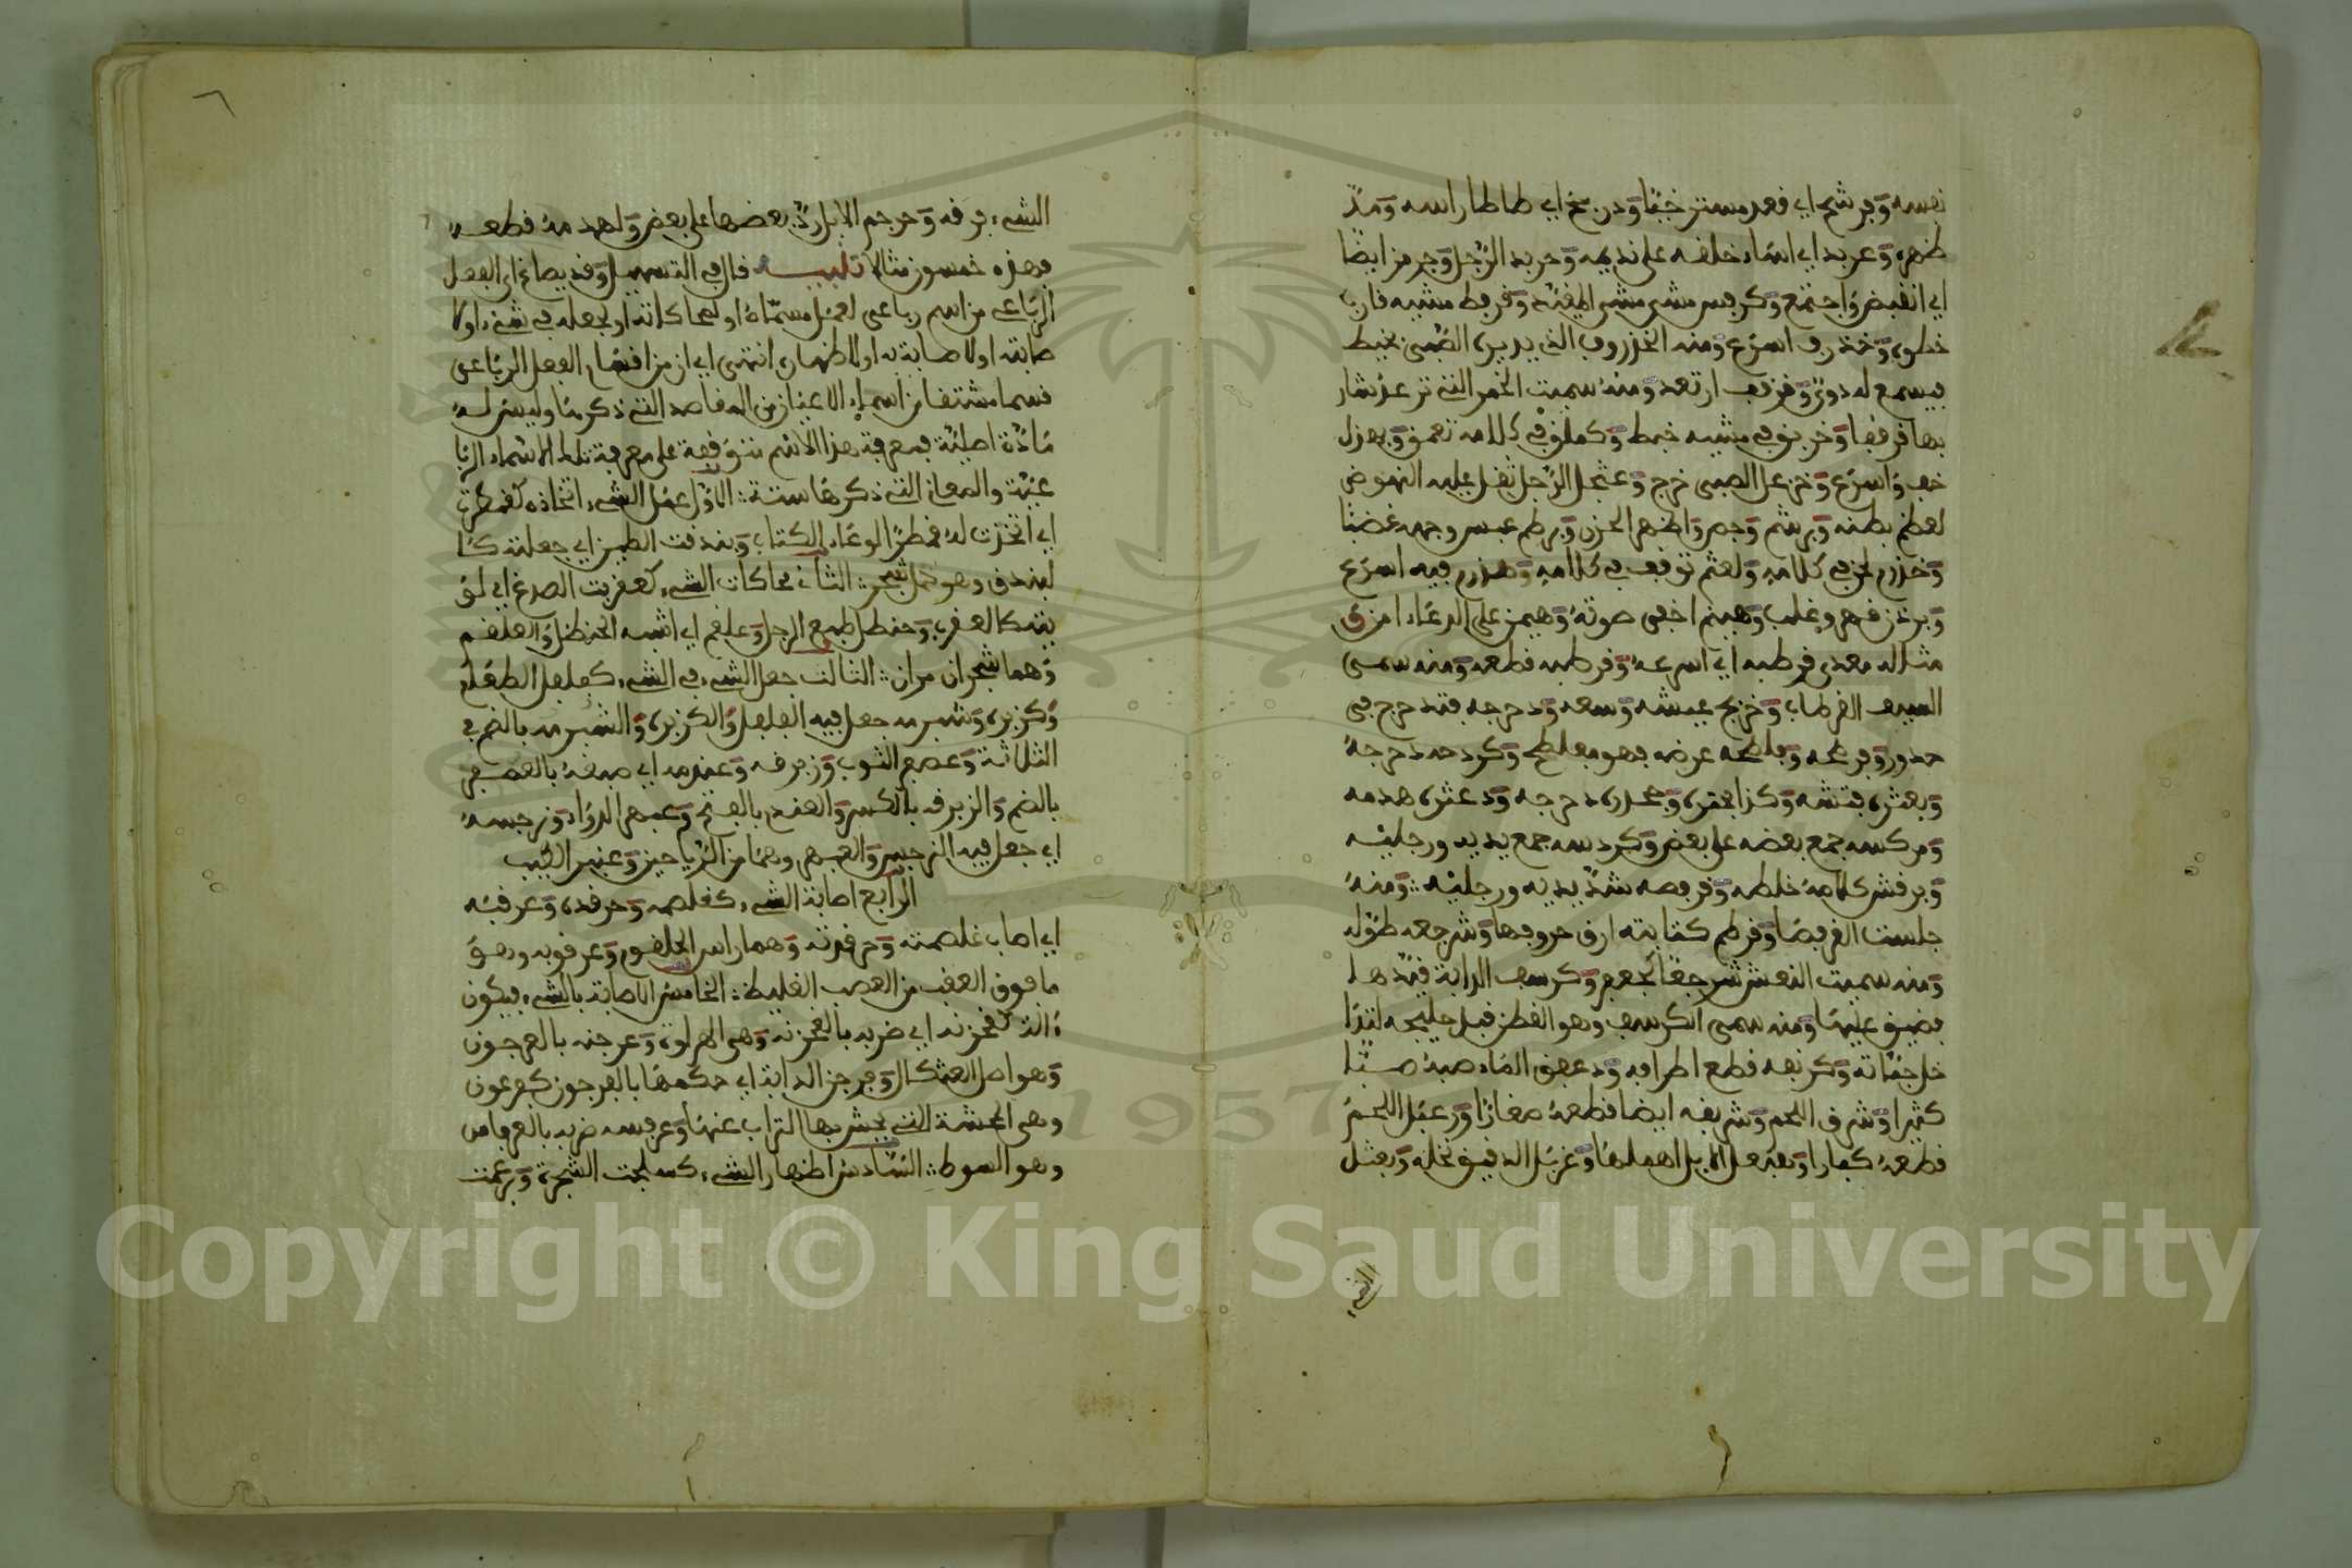 نفسه وَبرشم اي قعد مسترخيًا وَدربخ اي طاطا راسه وَمدّ
ظهره وَعربد اي اساء خلقه على نديمه وَحربد الرّجل وَجرمز ايضًا
اي انقبض وَاجتمع وَكربس مشى مشي المقيّد وَقرمط مشيه قارب
خطوه وَخذرف اسرع ومنه الخذروف الذي يديره الصّبي بخيط
فيسمع له دويّ وَقرقف ارتعد ومنه سميت الخمر التي ترعد شار
بها قرقفا وَخربق في مشيه خبط وَكملق في كلامه تعمق وَهزل
خف وَاسرع وَخزعل الصبي خرج وَعثجل الرّجل ثقل عليه النهوض
لعظم بطنه وَبرشم وَجم وَاظهر الحزن وَبرطم عبس وجهه غضبًا
وَخذرم لحن في كلامهِ وَلعثم توقف في كلامهِ وَهذرم فيه اسرع
وَبرذن قهر وغلب وَهينم اخفى صوته وَهيمن على الدعاء امن ق
مثاله معدى قرطبه اي اسرعه وَقرطبه قطعه ومنه سمي
السيف القرطاب وَخرفج عيشه وَسعه وَدحرجه فتدحرج في
حدور وَفرطحه وَفلطحه عرضه فهو مفلطح وَكردحه دحرجهُ
وَبعثره فتشه وَكذا بحثره وَجحدره دحرجه وَدعثره هدمه
وَبركسه جمع بعضه على بعض وَكردسه جمع يديه ورجليه
وَبرقش كلامهُ خلطه وَقرفصه شدّ يديه ورجليه ومنهُ
جلست القرفصا وَقرطم كتابته ارق حروفها وَشرجعه طوّله
وَمنه سميت النعش شرجعًا كجعفر وَكرسف الدابة قيّدها
فضيق عليها ومنه سمي الكرسف وهو القطن قبل حليجه لتدا
خل جثاته وَكرنفه قطع اطرافه وَدعفق الماء صبهُ صبّا
كثيرا وَشرق اللحم وَشربقه ايضا قطعهُ صغارًا وَرعبل اللحم
قطعهُ كبارا وَبعزعل الابل اهملها وَغربل الدقيق نخله وَبعثل
الشيء فرقه وَحرجم الابل ردّ بعضها على بعض وَلهذمهُ قطعهُ
فهذه خمسون مثالا تنبيه قال في التسهيل وقد يصاغ اي الفعل
الرباعي من اسم رباعي لعمل مسمّاهُ او لمحاكاته او لجعله في شيء او لا
صابته او لاصابة به او لاظهاره انتهى اي ان من اقسام الفعل الرباعي
قسما مشتقا من اسماء الاعيان من المقاصد التي ذكرها وليس لهُ
مادّة اصليّة فمعرفة هذا الاسم متوقفة على معرفة تلك الاسماء الربا
عيّة والمعاني التي ذكرها ستة الاوّل عمل الشيء اتخاذه كقمطرت
اي اتخذت لهُ قمطرًا لوعاء الكتاب وَبندقت الطين اي جعلته كا
لبندق وهو حمل شجر الثاني محاكات الشيء كعقربت الصدغ اي لو
يته كالعقرب وَحنظل طبع الرجل وَعلقم اي اشبه الحنظل وَالعلقم
وَهما شجران مران الثالث جعل الشيء في الشيء كفلفل الطعام
وَكزبره وَشبرمه جعل فيه الفلفل وَالكزبره وَالشبرم بالضم في
الثلاثة وَعصفر الثوب وَزبرقه وَعندمه اي صبغهُ بالعصفر
بالضم وَالزبرق بالكسر وَالعندم بالفتح وَعبهر الدوَاء وَنرجسهُ
اي جعل فيه النرجس وَالعبهر وهما من الرّياحين وَعنبر الطّيب
الرابع اصابة الشيء كغلصمه وَحرقده وَعرقبه
اي اصاب غلصمته وَحرقدته وَهما راس الحلقوم وَعرقوبه وهو
ما فوق العقب من العصب الغليظ الخامس الاصابة بالشيء فيكون
ءالة كقحزنه اي ضربه بالقحزنة وَهي الهراوة وَعرجنه بالعرجون
وَهو اصل العثكال وَفرجن الدابة اي حكمها بالفرجون كفرعون
وهي المحشة التي يحش بها التراب عنها وَعرفسه ضربه بالعرفاس
وهو السوط السّادس اظهار الشيء كعسلجت الشجرة وَبرعمت
الشي
Copyright © King Saud University
1957